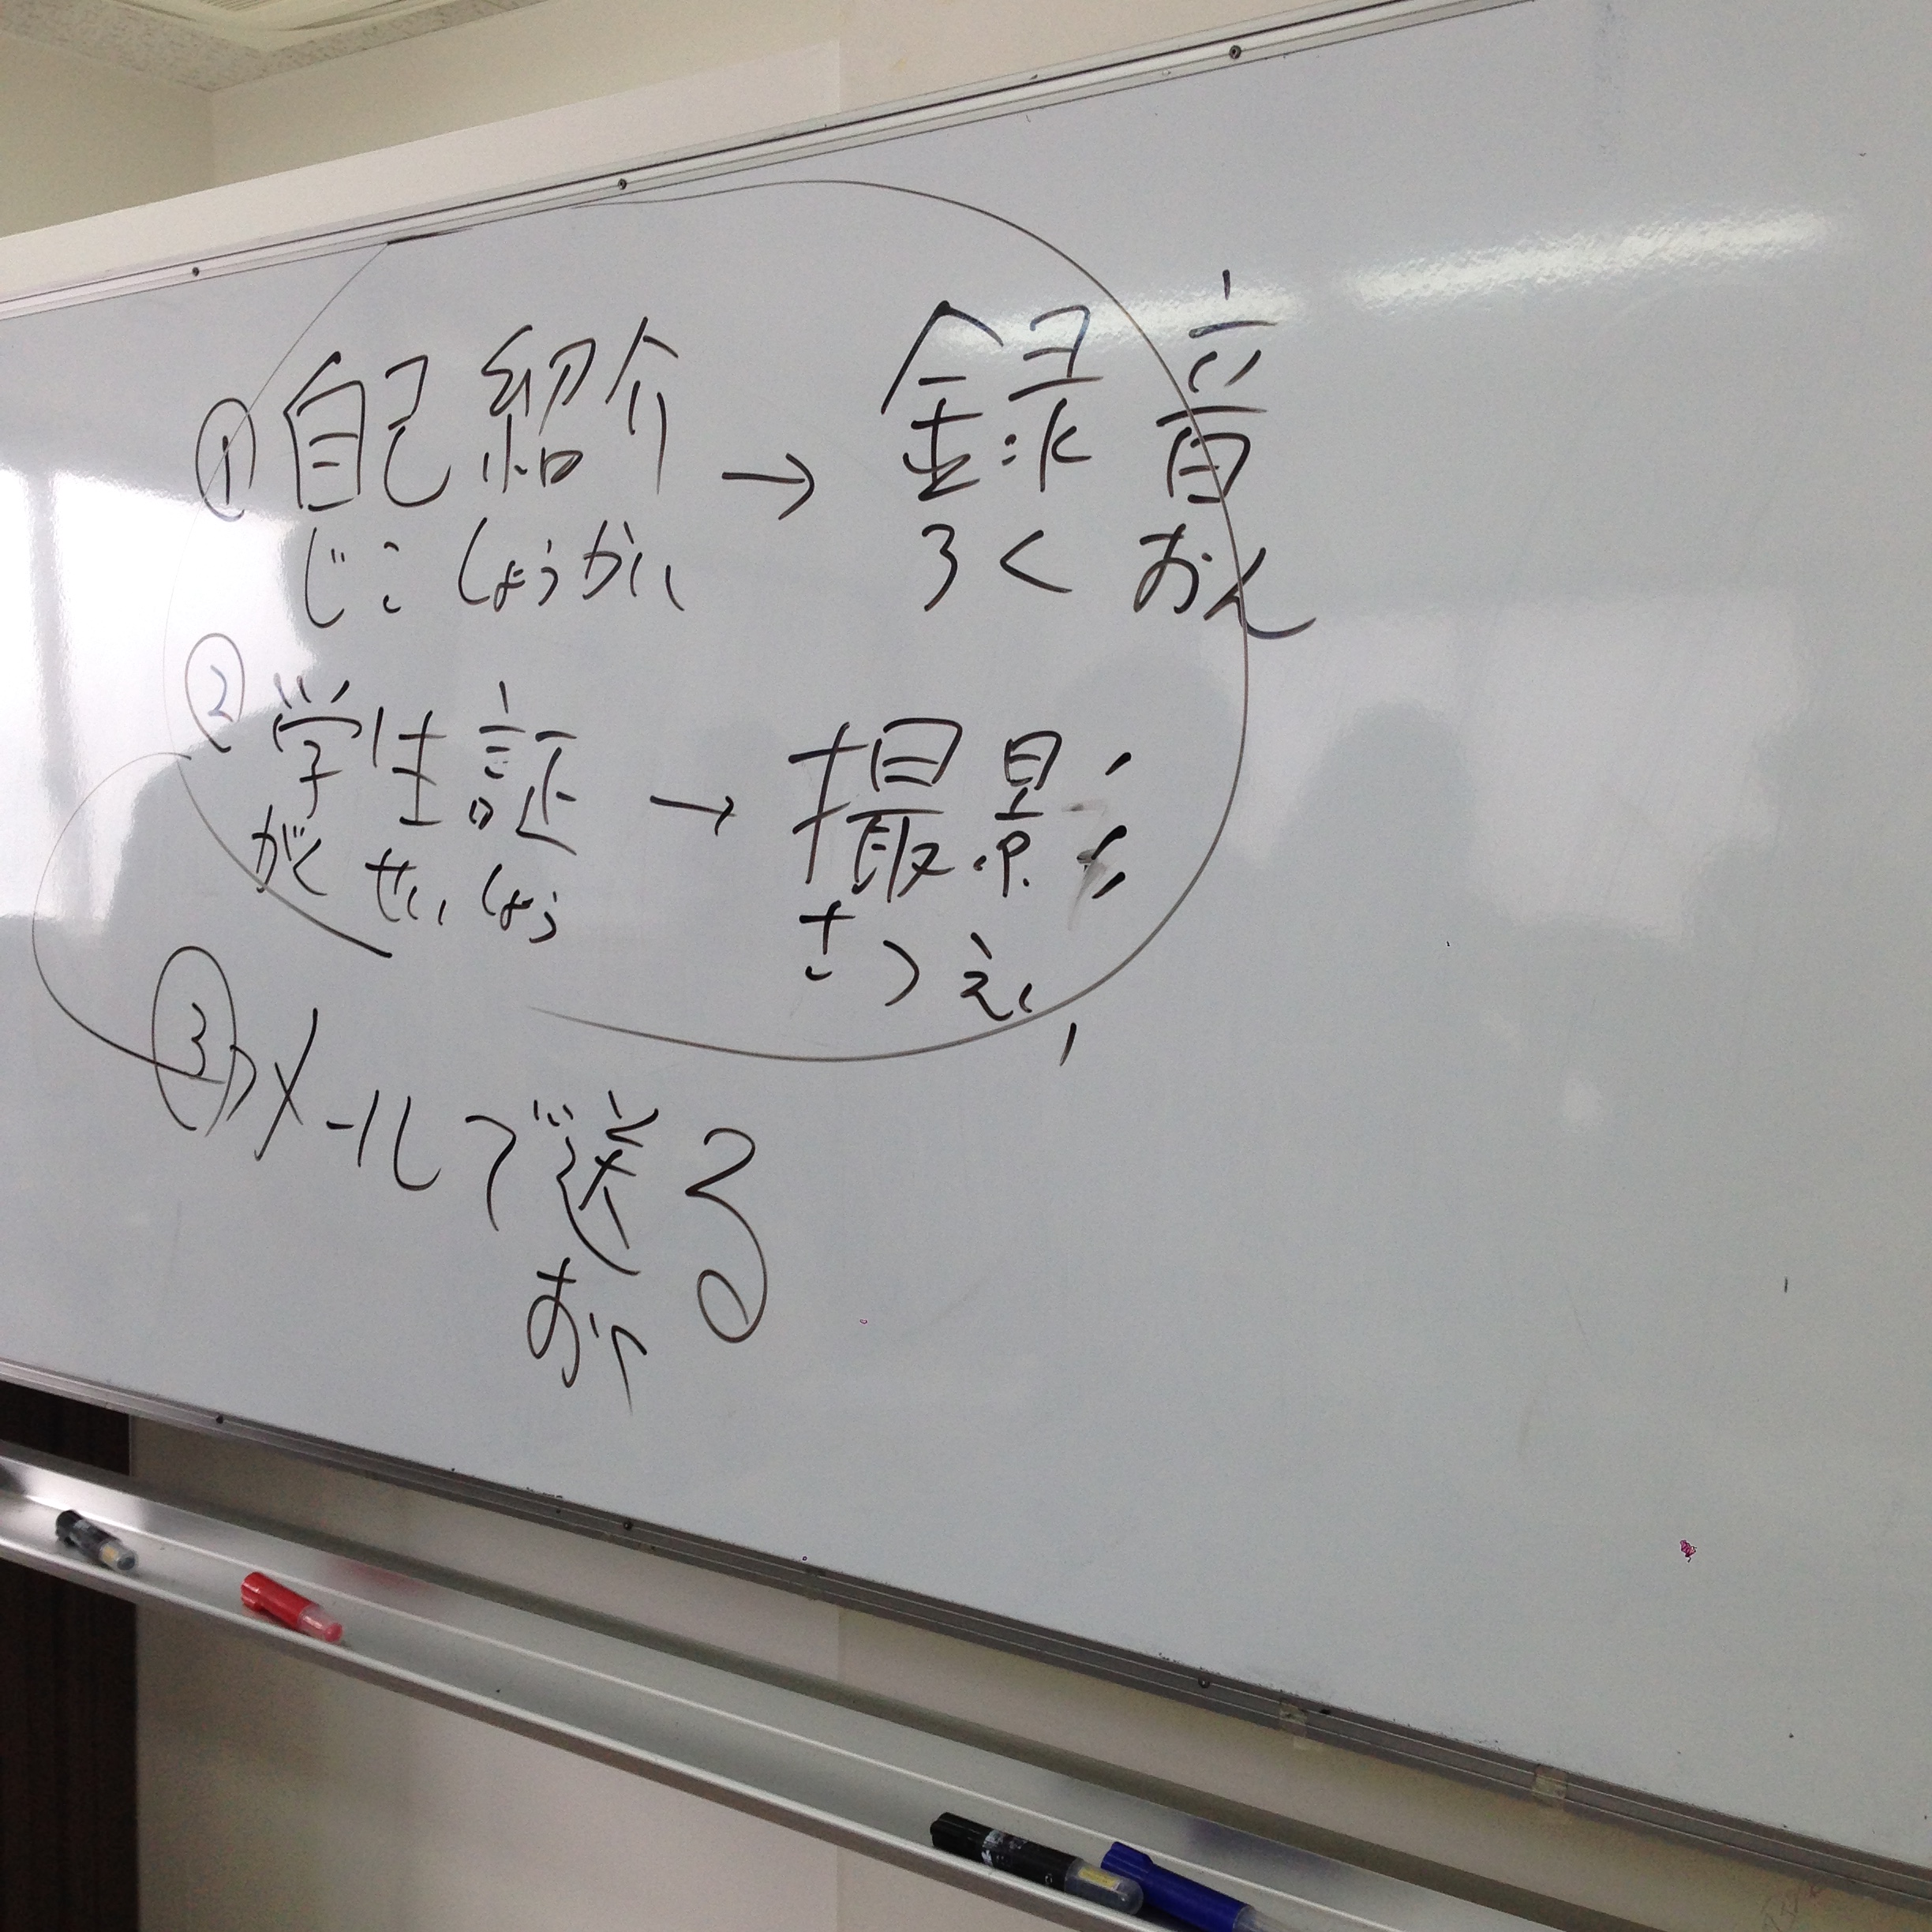 ① 自己紹介 → 録音
じこしょうかい ろくおん
② 学生証 → 撮影
がくせいしょう さつえい
③ メールで送る
おく